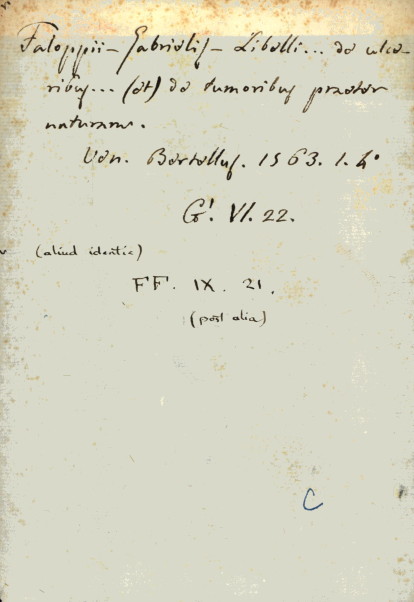 Faloppii - Gabrielis - Libelli... de ulce-
ribus... (et) de tumoribus praeter
naturam.
Ven. Bertellus. 1563. 1. 4°
G'. VI. 22.
(aliud identic)
FF. IX. 21.
(post alia)
C